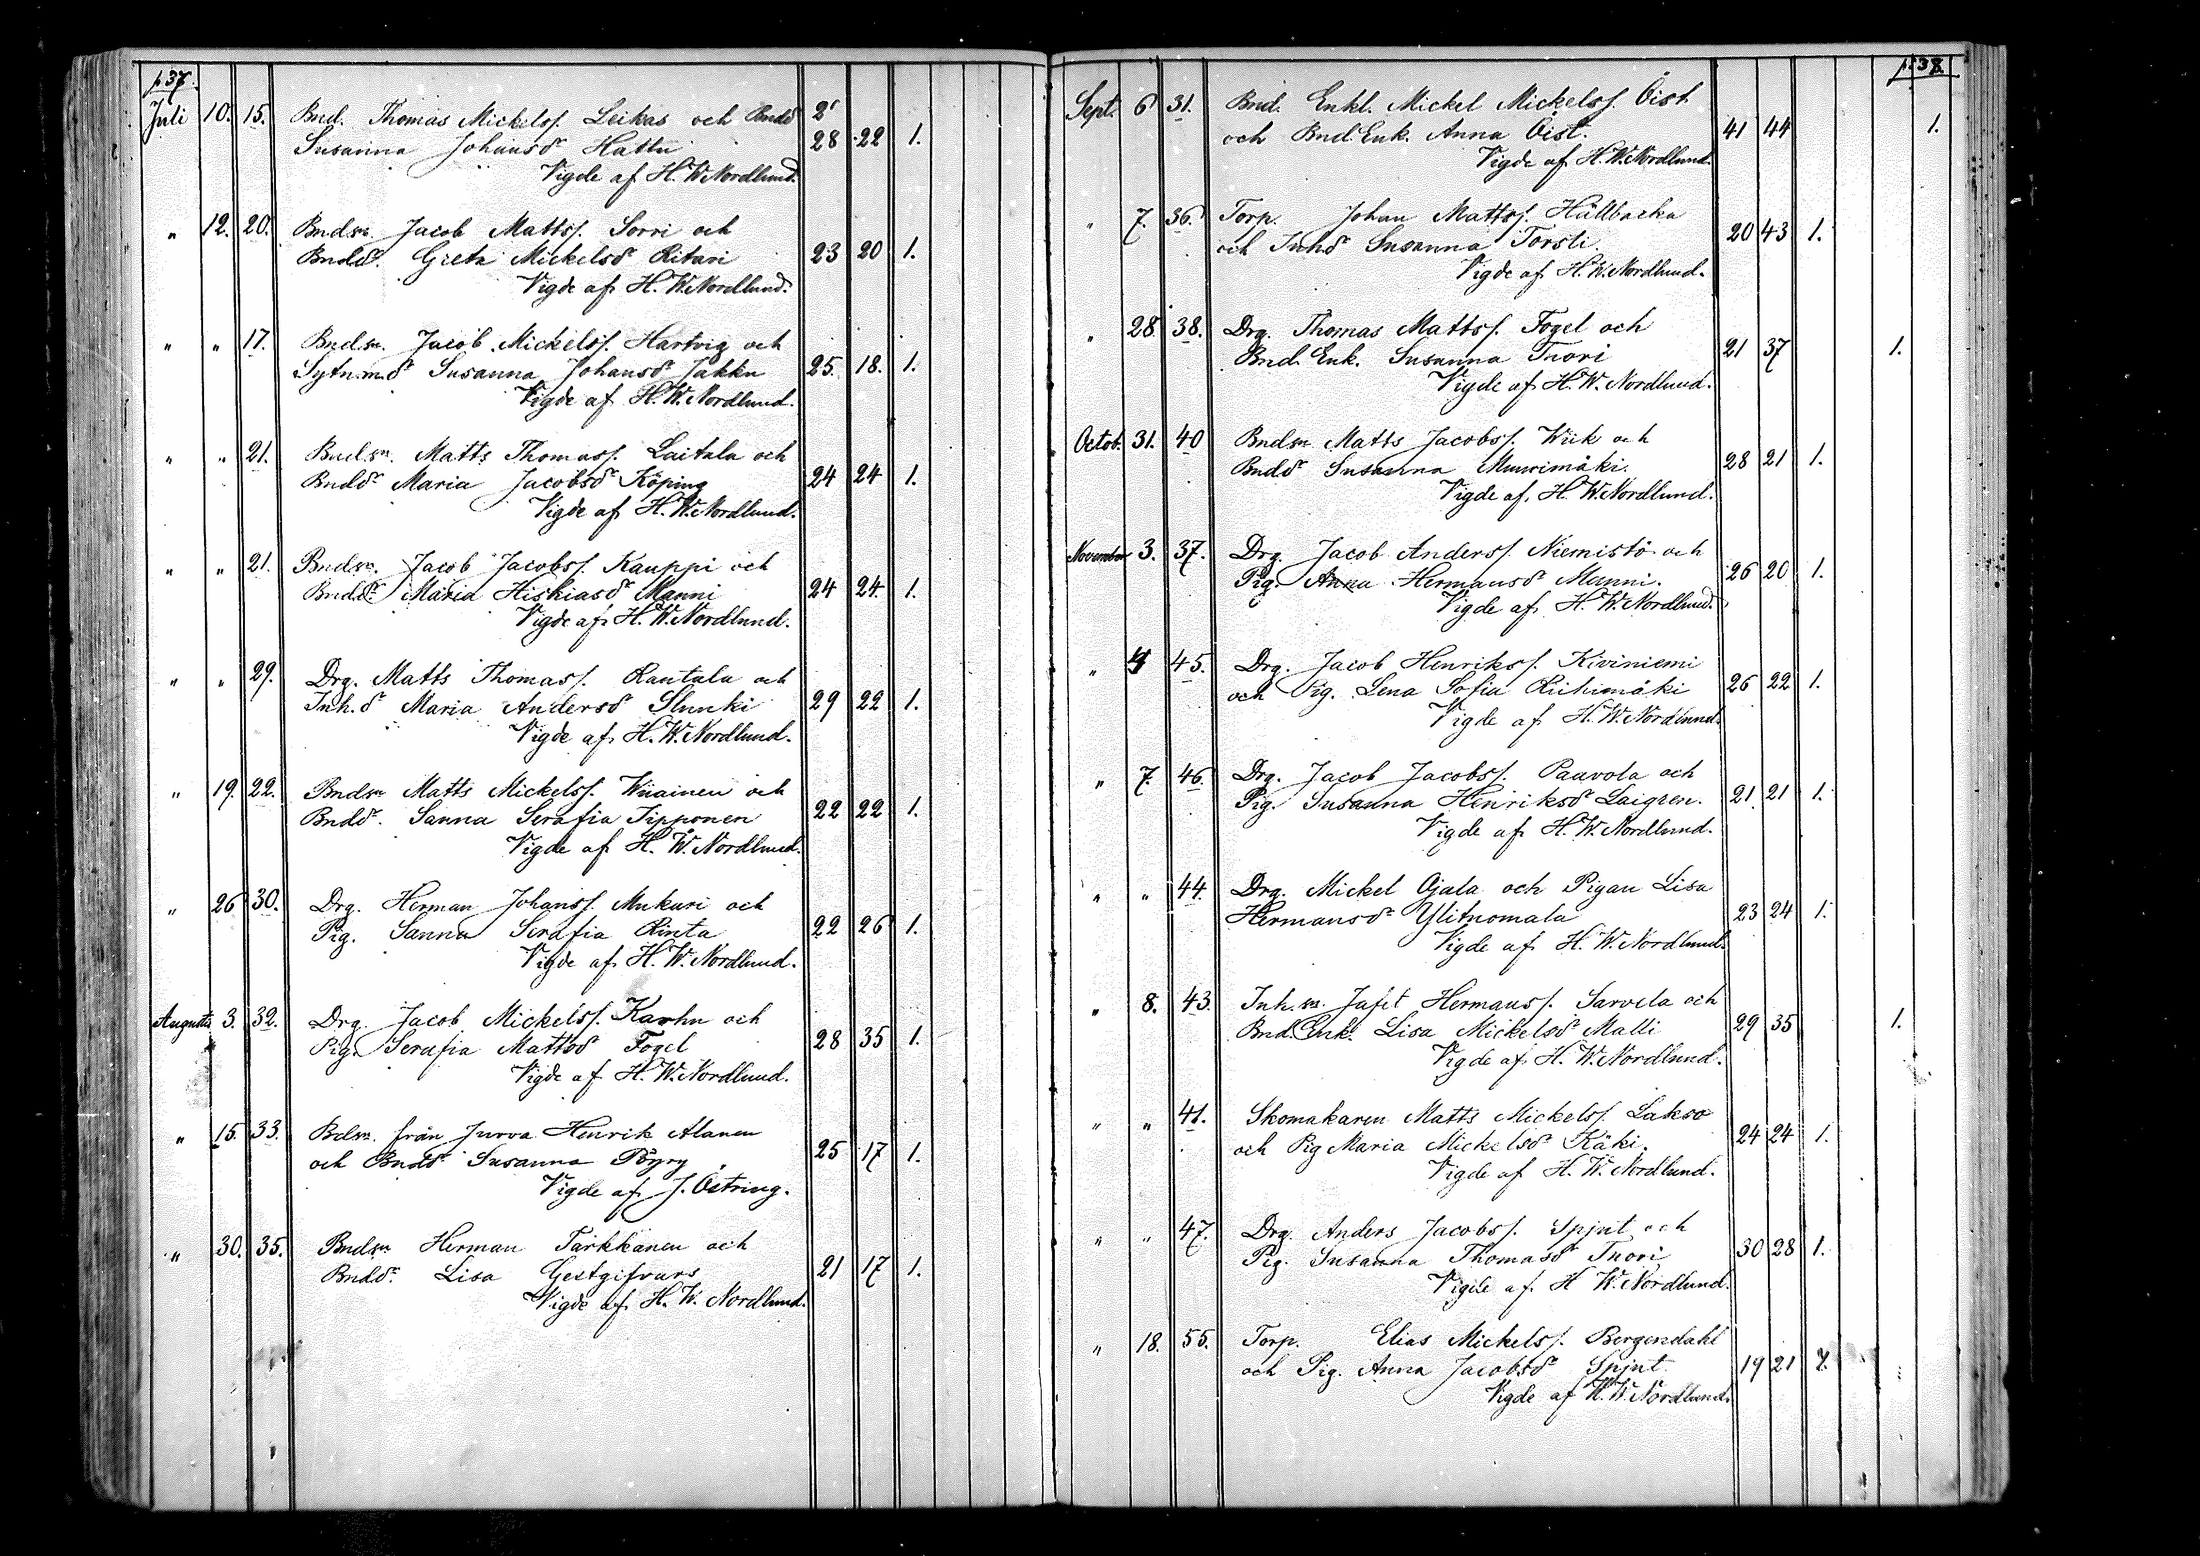 p. 37.
Juli 10. 15. Bnd. Thomas Mickelss. Leikas och Bndd
Susanna Johansdr Hattu 28 22 1.
Vigde af H. W. Nordlund.
" 12. 20. Bndsn Jacob Mattss. Sorri och
Bndd. Greta Mickelsdr Ritari 23 20 1.
Vigde af H. W. Nordlund.
" " 17. Bndsn. Jacob Mickelss. Hartvig och
Sytn.m.dr Susanna Johansdr Jakku 25. 18. 1.
Vigde af H. W. Nordlund.
" " 21. Bndsn. Matts Thomass. Laitala och
Bnddr Maria Jacobsdr Köping 24 24 1.
Vigde af H. W. Nordlund.
" " 21. Bndsn. Jacob Jacobss. Kauppi och
Bnddr Maria Hiskiasdr Manni 24 24. 1.
Vigde af H. W. Nordlund.
" " 29. Drg. Matts Thomass. Rantala och
Inh.dr Maria Andersdr Slunki 29 22 1.
Vigde af H. W. Nordlund.
" 19. 22. Bndsn Matts Mickelss. Wiiainen och
Bnddr. Sanna Serafia Tipponen 22 22 1.
Vigde af H. W. Nordlund.
" 26 30. Drg. Herman Johanss. Mukari och
Pig. Sanna Serafia Rinta 22 26 1.
Vigde af H. W. Nordlund.
Augusti 3. 32. Drg. Jacob Mickelss. Karhu och
Pig. Serafia Mattsdr Fogel 28 35 1.
Vigde af H. W. Nordlund.
" 15. 33. Bdsn. från Jurva Henrik Alanen
och Bnddr Susanna Pöyry 25 17 1.
Vigde af J. Östring.
" 30. 35. Bndsn Herman Tarkkanen och
Bnddr. Lisa Gestgifvars 21 17 1.
Vigde af H. W. Nordlund.
p. 38.
Sept. 6 31. Bnd. Enkl. Mickel Mickelss. Öist
och Bnd. Enk. Anna Öist. 41 44 1.
Vigde af H. W. Nordlund.
" 7. 36. Torp. Johan Mattss. Hällbacka
och Inhdr Susanna Torsti. 20 43 1.
Vigde af H. W. Nordlund.
" 28. 38. Drg. Thomas Mattss. Fogel och
Bnd. Enk. Susanna Tuori 21 37 1.
Vigde af H. W. Nordlund.
Octob. 31. 40 Bndsn Matts Jacobss. Wiik och
Bnddr Susanna Muurimäki. 28 21 1.
Vigde af H. W. Nordlund.
November 3. 37. Drg. Jacob Anderss. Niemistö och
Pig. Anna Hermansdr Munni. 26 20 1.
Vigde af H. W. Nordlund.
" 4 45. Drg. Jacob Henrikss. Kiviniemi
och Pig. Lena Sofia Riihimäki 26 22 1.
Vigde af H. W. Nordlund.
" 7. 46. Drg. Jacob Jacobss. Pauvola och
Pig. Susanna Henriksdr Laigren. 21. 21 1.
Vigde af H. W. Nordlund.
" " 44. Drg. Mickel Ojala och Pigan Lisa
Hermansdr Ylituomala 23 24 1.
Vigde af H. W. Nordlund.
" 8. 43. Inh.sn. Jafet Hermanss. Sarvela och
Bnd. Enk. Lisa Mickelsdr Malli 29 35 1.
Vigde af H. W. Nordlund.
" " 41. Skomakaren Matts Mickelss. Lakso
och Pig Maria Mickelsdr Käki. 24 24 1.
Vigde af H. W. Nordlund.
" " 47. Drg. Anders Jacobss. Spjut och
Pig. Susanna Thomasdr Tuori 30 28 1.
Vigde af H W. Nordlund.
" 18. 55. Torp. Elias Mickelss. Bergendahl
och Pig. Anna Jacobsdr Spjut 19 21 1.
Vigde af H. W. Nordlund.